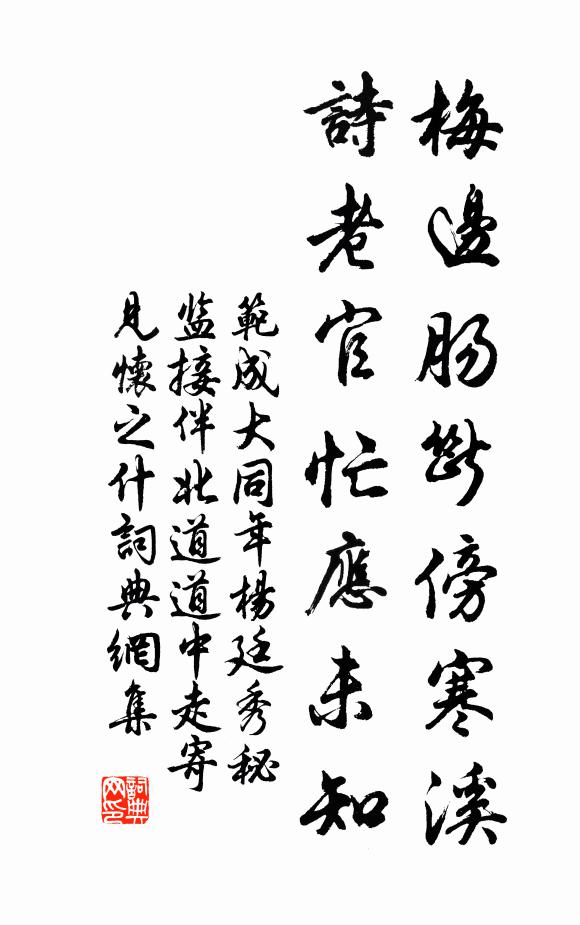 梅邊腸斷傍寒溪
詩老官忙應未知
範成大同年楊廷秀秘
监接伴北道道中走寄
見懷之什詞典網集
詞典網印